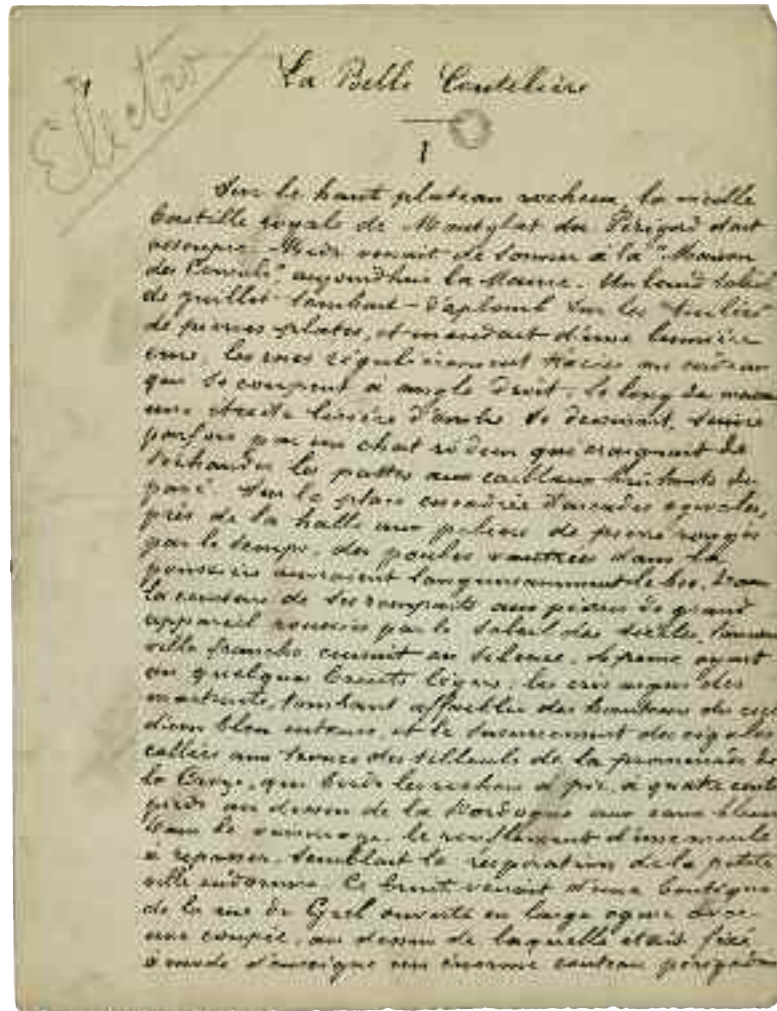 Electro
La Belle Coutelière
I
Sur le haut plateau rocheux, la vieille
bastille royale de Montglat du Périgord était
assoupie. Midi venait de sonner à la "Maison
des Consuls", aujourd'hui la Mairie. Un lourd soleil
de juillet tombait d'aplomb sur les
de pierres plates, et inondait d'une lumière
crue, les rues régulièrement tracées au cordeau
qui se coupent à angle droit. Le long des
une étroite lisière d'ombre se dessinait, suivie
parfois par un chat rôdeur qui craignait de
s'échauder les pattes aux cailloux brûlants du
pavé. Sur la place encadrée d'arcades ogivales,
près de la halle aux piliers de pierre rongés
par le temps, des poules vautrées dans la
poussière ouvraient languissamment le bec. Dans
la ceinture de ses remparts aux pierres de grand
appareil roussies par le soleil des siècles,
ville franche cuisait en silence. À peine oyait
on quelques bruits légers, les cris aigus des
martinets, tombant affaiblis des hauteurs du
bleu intense, et le susurrement des cigales
collées aux troncs des tilleuls de la promenade de
la Croze, qui borde le rocher à pic, à quatre cents
pieds au dessus de la Dordogne aux eaux bleues
Dans le voisinage, le ronflement d'une meule
à repasser semblait la respiration de la petite
ville endormie. Ce bruit venait d'une boutique
de la rue du Grel ouverte en large ogive avec
une coupée, au dessus de laquelle était fixé
à mode d'enseigne un énorme couteau